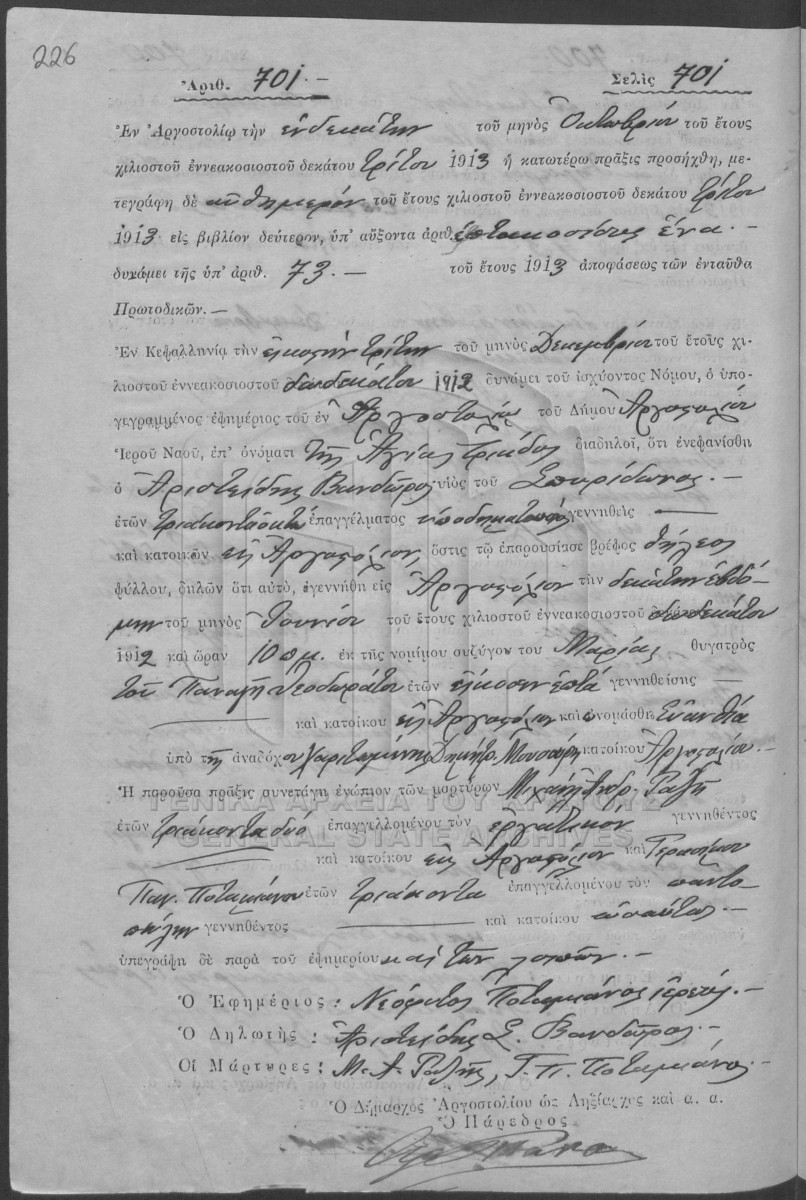 226
Ἀριθ. 701.— Σελὶς 701
Ἐν Ἀργοστολίῳ τὴν ἑνδεκάτην τοῦ μηνὸς Ὀκτωβρίου τοῦ ἔτους
χιλιοστοῦ ἐννεακοσιοστοῦ δεκάτου τρίτου 1913 ἡ κατωτέρω πρᾶξις προσήχθη, με-
τεγράφη δὲ αὐθημερόν τοῦ ἔτους χιλιοστοῦ ἐννεακοσιοστοῦ δεκάτου τρίτου
1913 εἰς βιβλίον δεύτερον, ὑπ' αὔξοντα ἀριθ. ἑπτακοσίους ἕνα.—
δυνάμει τῆς ὑπ' ἀριθ. 73.— τοῦ ἔτους 1913 ἀποφάσεως τῶν ἐνταῦθα
Πρωτοδικῶν.—
Ἐν Κεφαλληνίᾳ τὴν εἰκοστὴν τρίτην τοῦ μηνὸς Δεκεμβρίου τοῦ ἔτους χι-
λιοστοῦ ἐννεακοσιοστοῦ δωδεκάτου 1912 δυνάμει τοῦ ἰσχύοντος Νόμου, ὁ ὑπο-
γεγραμμένος ἐφημέριος τοῦ ἐν Ἀργοστολίῳ τοῦ Δήμου Ἀργοστολίου
Ἱεροῦ Ναοῦ, ἐπ' ὀνόματι τῆς Ἁγίας Τριάδος διαδηλοῖ, ὅτι ἐνεφανίσθη
ὁ Ἀριστείδης Βανδῶρος υἱὸς τοῦ Σπυρίδωνος.—
ἐτῶν τριάκοντα ὀκτὼ ἐπαγγέλματος ὑποδηματοποιὸς γεννηθεὶς —
καὶ κατοικῶν εἰς Ἀργοστόλιον, ὅστις τῷ ἐπαρουσίασε βρέφος θήλεος
φύλλου, δηλῶν ὅτι αὐτό, ἐγεννήθη εἰς Ἀργοστόλιον τὴν δεκάτην ἑβδό-
μην τοῦ μηνὸς Ἰουνίου τοῦ ἔτους χιλιοστοῦ ἐννεακοσιοστοῦ δωδεκάτου
1912 καὶ ὥραν 10 π.μ. ἐκ τῆς νομίμου συζύγου του Μαρίας θυγατρὸς
τοῦ Παναγῆ Θεοδωράτου ἐτῶν εἴκοσιν ἑπτά γεννηθείσης —
— καὶ κατοίκου εἰς Ἀργοστόλιον καὶ ὠνομάσθη Εὐανθία
ὑπὸ τῆς ἀναδόχου Χαριτωμένης Δημητρ. Μουσούρη κατοίκου Ἀργοστολίου.—
Ἡ παροῦσα πρᾶξις συνετάγη ἐνώπιον τῶν μαρτύρων Μιχαὴλ Ἀνδρ. Ραζῆ
ΓΕΝΙΚΑ ΑΡΧΕΙΑ ΤΟΥ ΚΡΑΤΟΥΣ
ἐτῶν τριάκοντα δύο ἐπαγγελλομένου τὸν ἐργατικὸν γεννηθέντος
GENERAL STATE ARCHIVES
— καὶ κατοίκου εἰς Ἀργοστόλιον καὶ Γερασίμου
Παν. Ποταμιάνου ἐτῶν τριάκοντα ἐπαγγελλομένου τὸν παντο-
πώλην γεννηθέντος — καὶ κατοίκου ὡσαύτως.—
ὑπεγράφη δὲ παρὰ τοῦ ἐφημερίου καὶ τῶν λοιπῶν.—
Ὁ Ἐφημέριος: Νεόφυτος Ποταμιάνος ἱερεύς.—
Ὁ Δηλωτής: Ἀριστείδης Σ. Βανδῶρος.—
Οἱ Μάρτυρες: Μ. Α. Ραζῆς, Γ. Π. Ποταμιάνος.—
Ὁ Δήμαρχος Ἀργοστολίου ὡς Ληξίαρχος καὶ α. α.
Ὁ Πάρεδρος